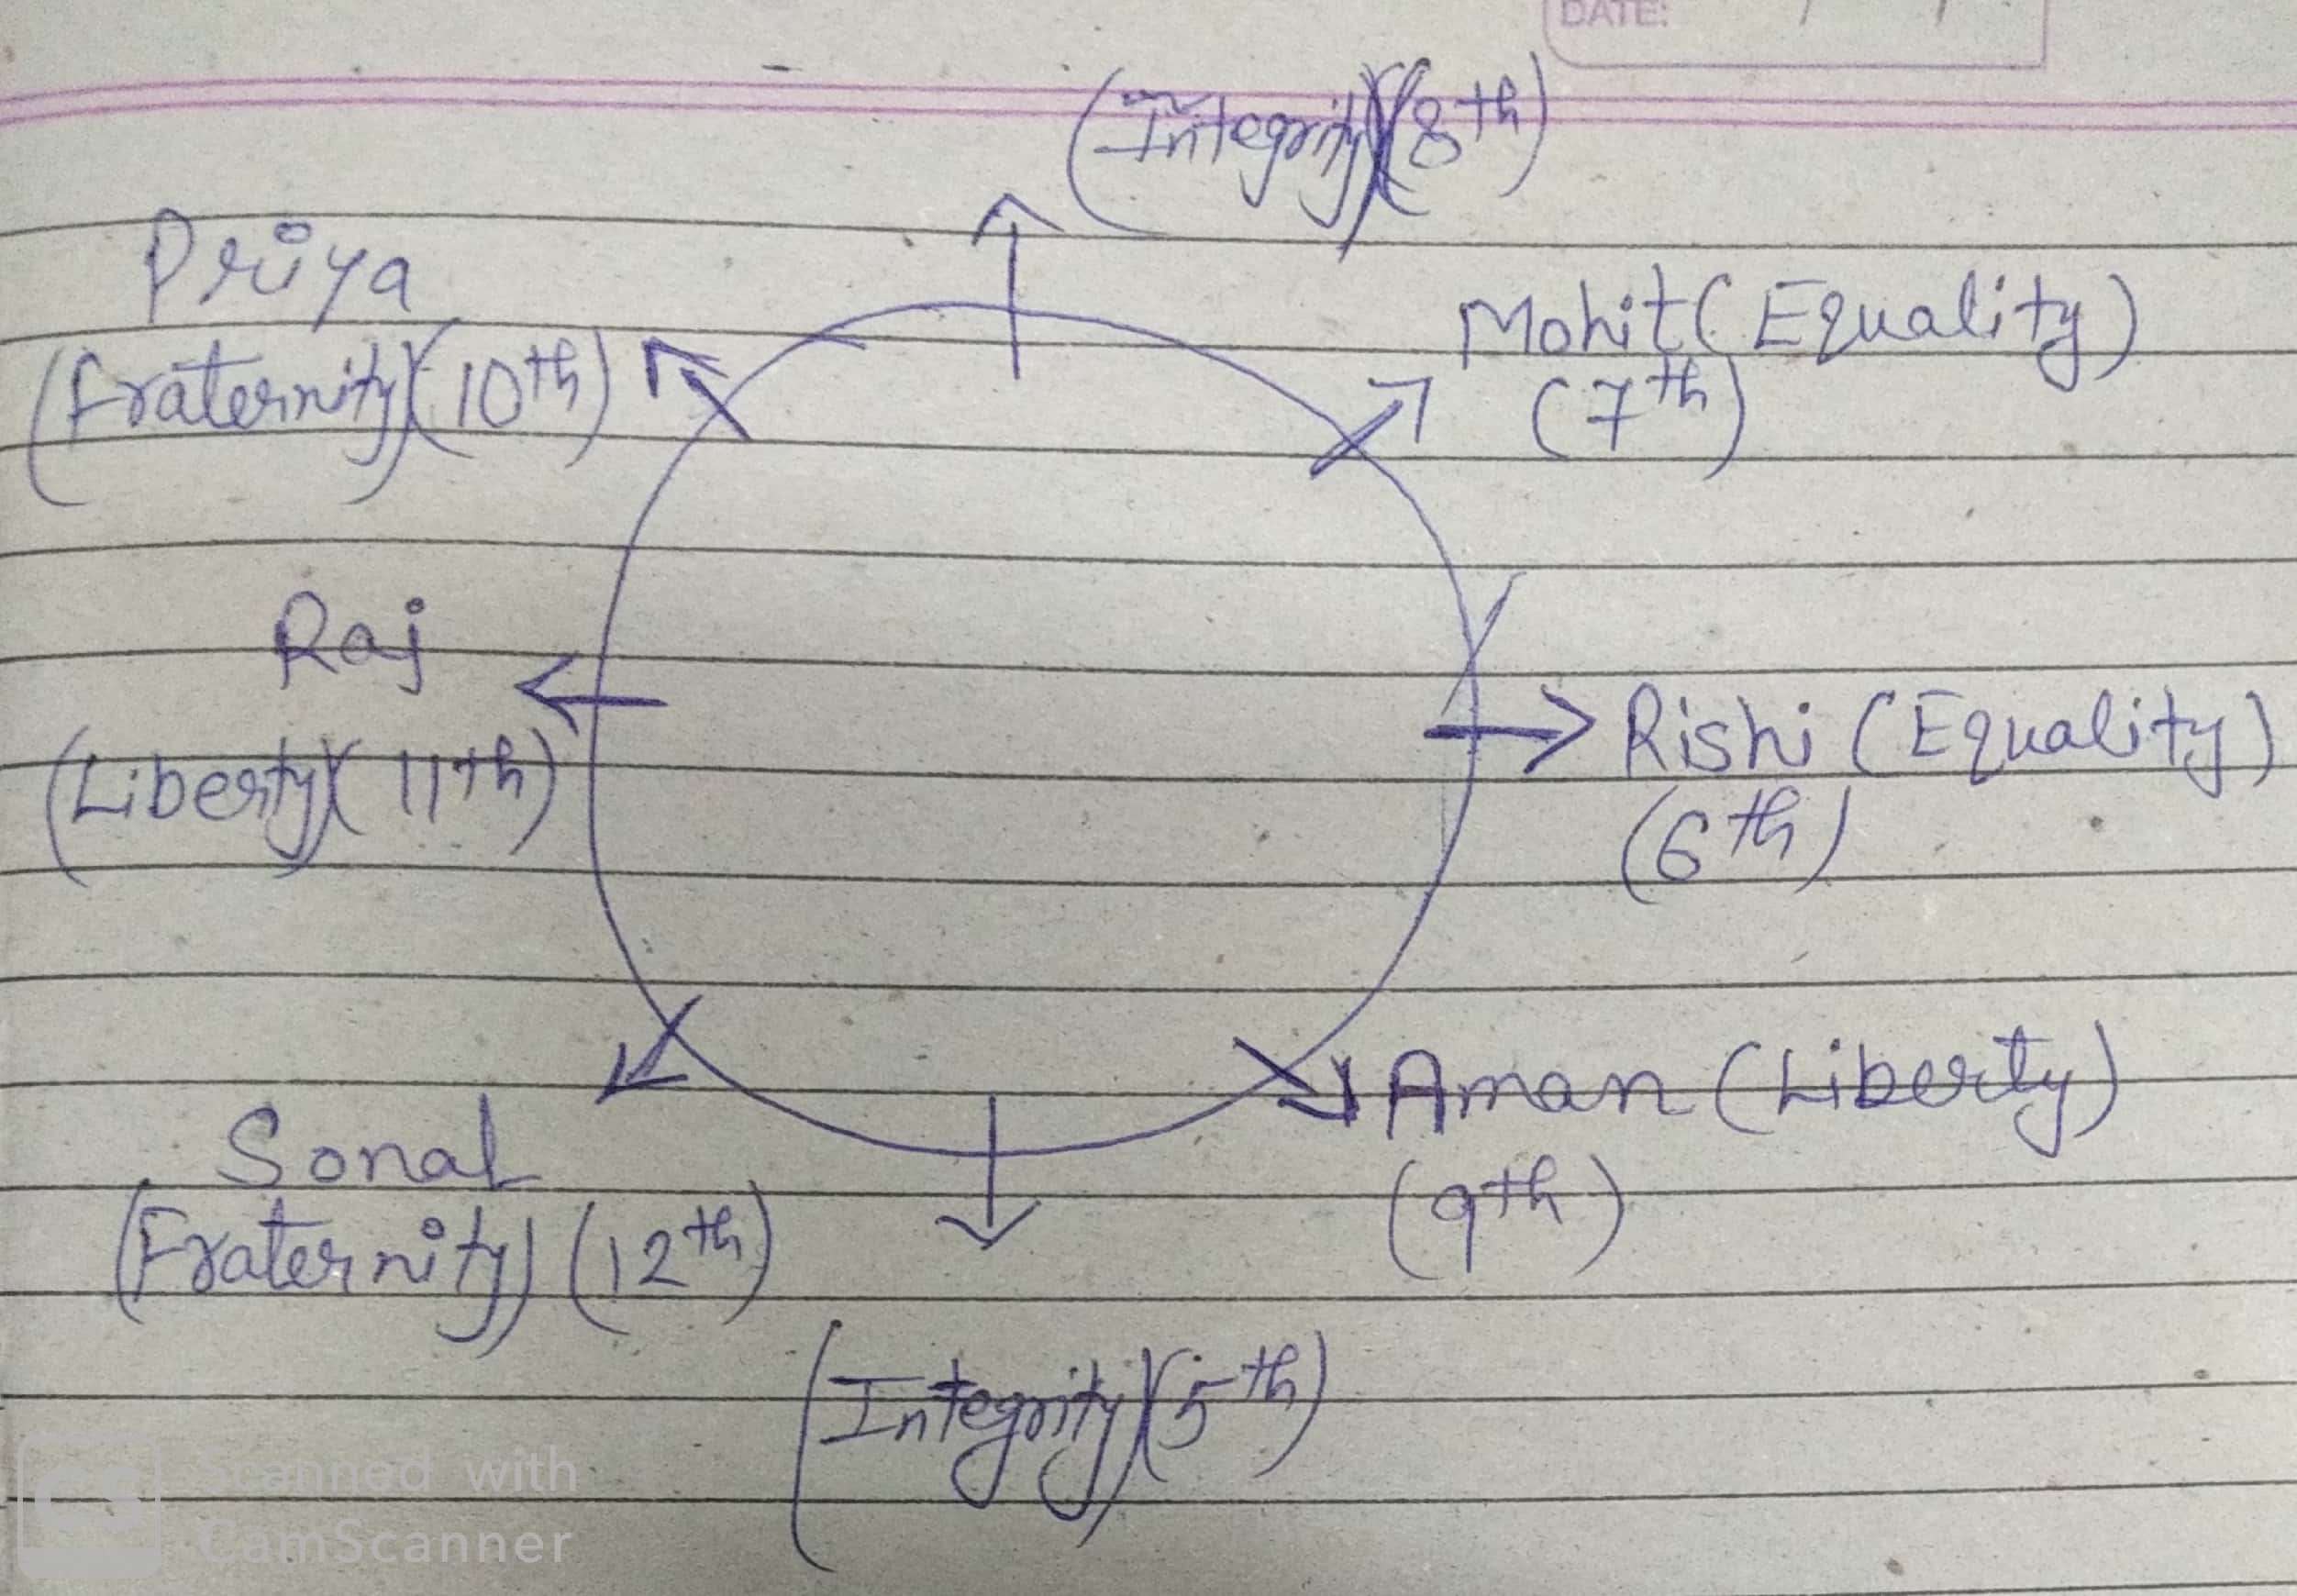 DATE:
(Integrity)(8th)
Priya
(fraternity)(10th)
Mohit (Equality)
(7th)
Raj
(Liberty)(11th)
Rishi (Equality)
(6th)
Aman (Liberty)
(9th)
Sonal
(Fraternity) (12th)
(Integrity)(5th)
CS Scanned with
CamScanner